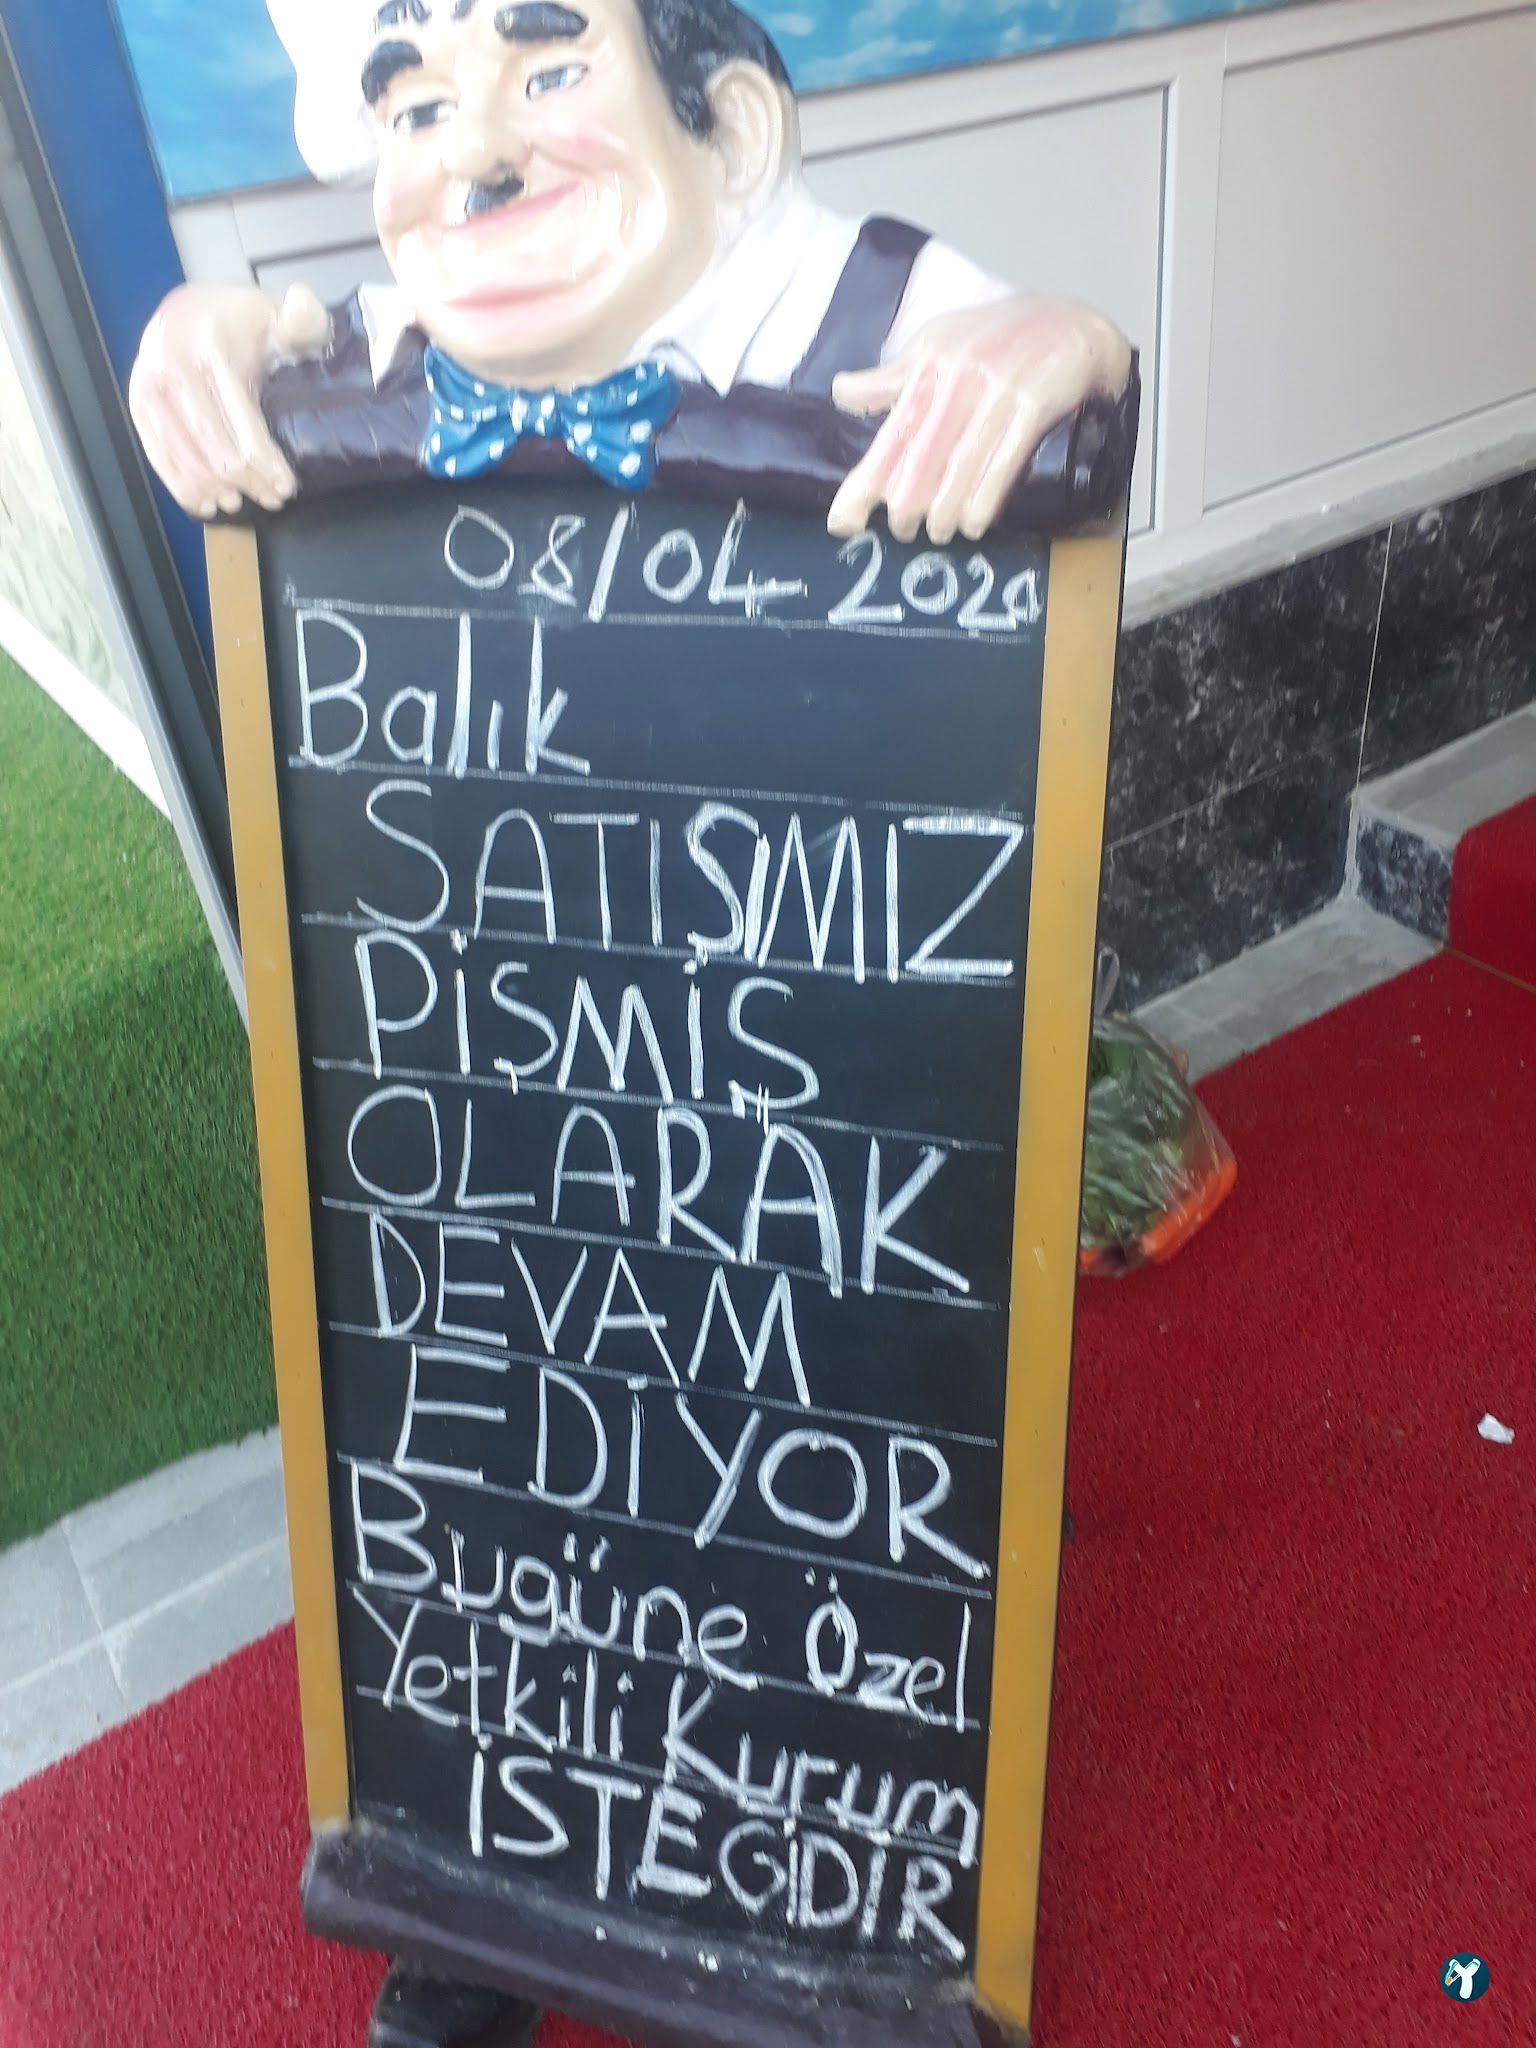 08/04 2020
Balık
SATIŞIMIZ
PİŞMİŞ
OLARAK
DEVAM
EDİYOR
Bugüne Özel
Yetkili Kurum
İSTEGİDİR